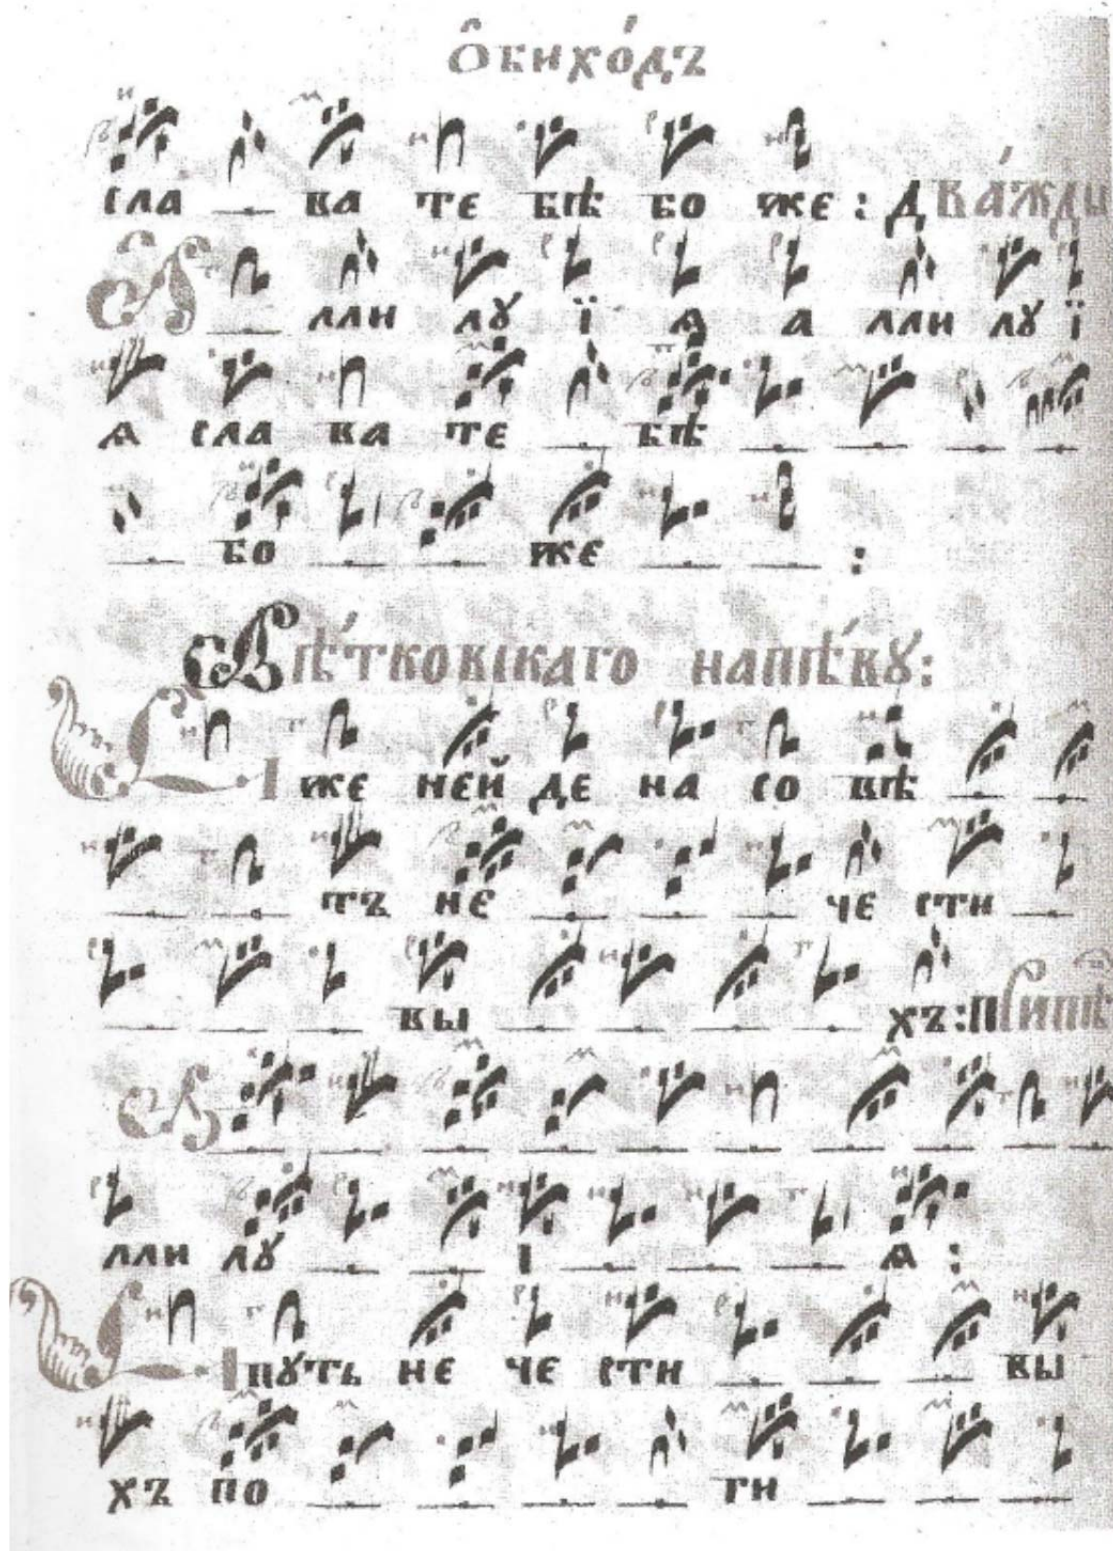 Ѻ҆бихо́дъ
сла ва те бѣ бо же : два́жды
А лли лꙋ ї ѧ а лли лꙋ ї
ѧ сла ва те бѣ
бо же :
Вѣ́тковскаго напѣ́вꙋ:
И же ней де на со вѣ
тъ не че сти
вы хъ: Припѣ
А
лли лꙋ і ѧ :
И пꙋть не че сти вы
хъ по ги